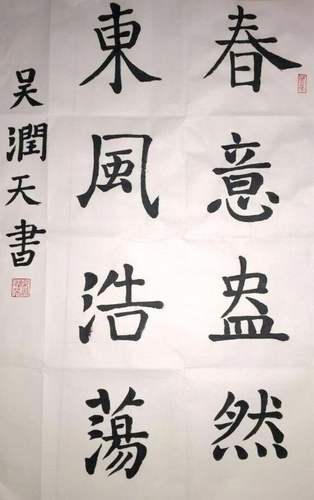 春意盎然
東風浩蕩
吴潤天書